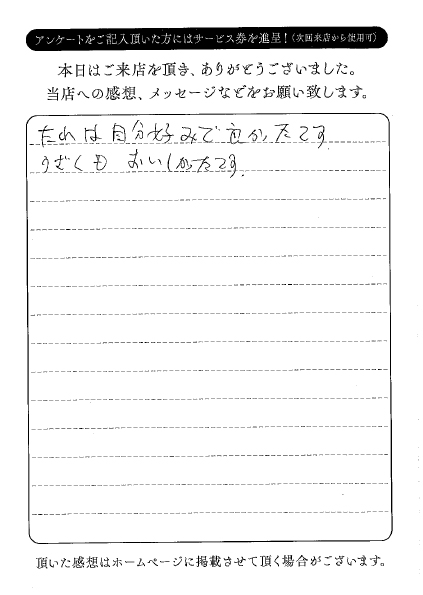 アンケートをご記入頂いた方にはサービス券を進呈！（次回来店から使用可）
本日はご来店を頂き、ありがとうございました。
当店への感想、メッセージなどをお願い致します。
たれは自分好みで良かったです
うざくも おいしかったです.
頂いた感想はホームページに掲載させて頂く場合がございます。